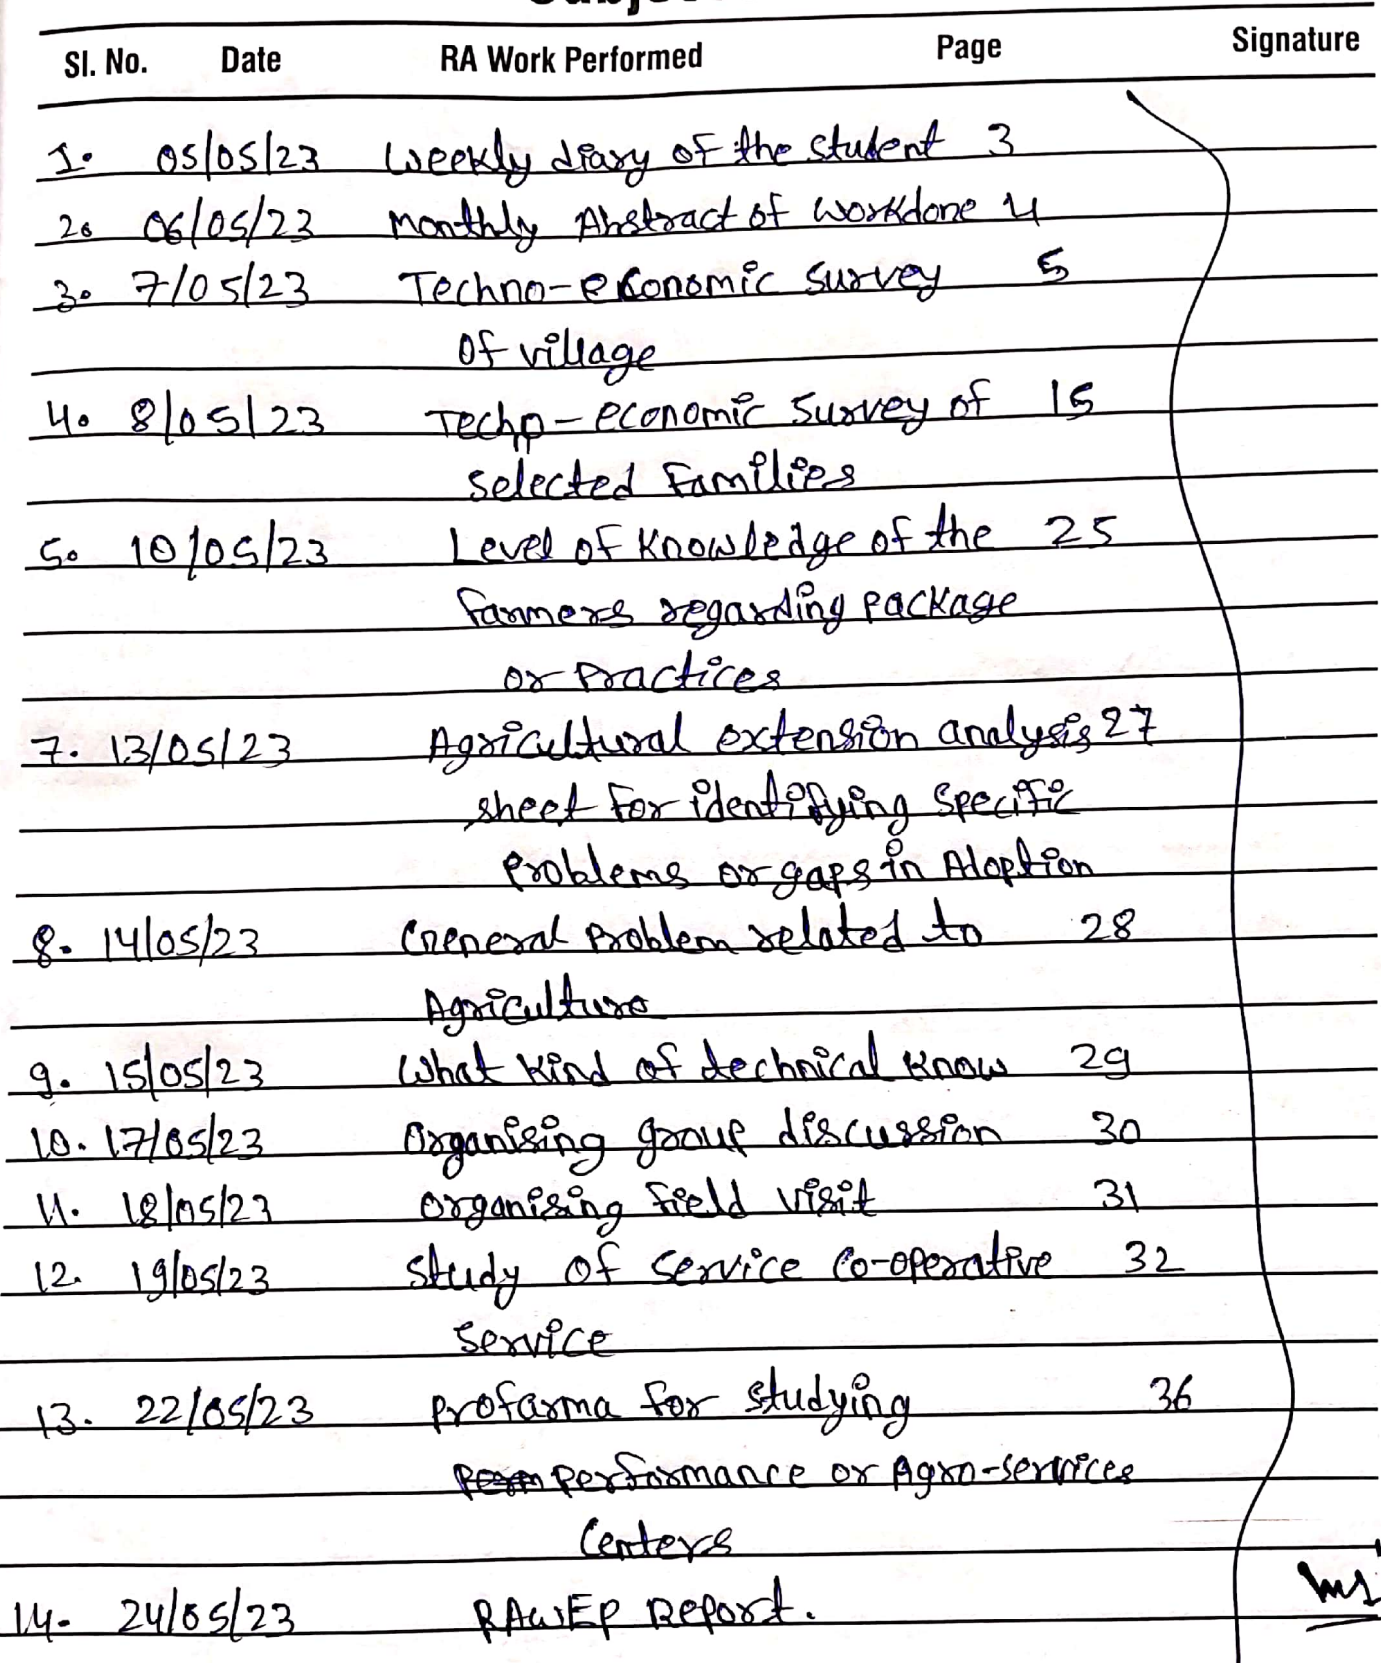 Sl. No. Date RA Work Performed Page Signature
1. 05/05/23 Weekly diary of the student 3
2. 06/05/23 Monthly Abstract of Workdone 4
3. 7/05/23 Techno-economic survey 5
of village
4. 8/05/23 Techno-economic survey of 15
selected families
5. 10/05/23 Level of Knowledge of the 25
farmers regarding package
or Practices
7. 13/05/23 Agricultural extension analysis 27
sheet for identifying specific
Problems or gaps in Adoption
8. 14/05/23 General Problem related to 28
Agriculture
9. 15/05/23 What kind of technical know 29
10. 17/05/23 Organising group discussion 30
11. 18/05/23 Organising field visit 31
12. 19/05/23 Study of service Co-operative 32
Service
13. 22/05/23 Profarma for studying 36
Performance or Agro-services
Centers
14. 24/05/23 RAWEP Report.